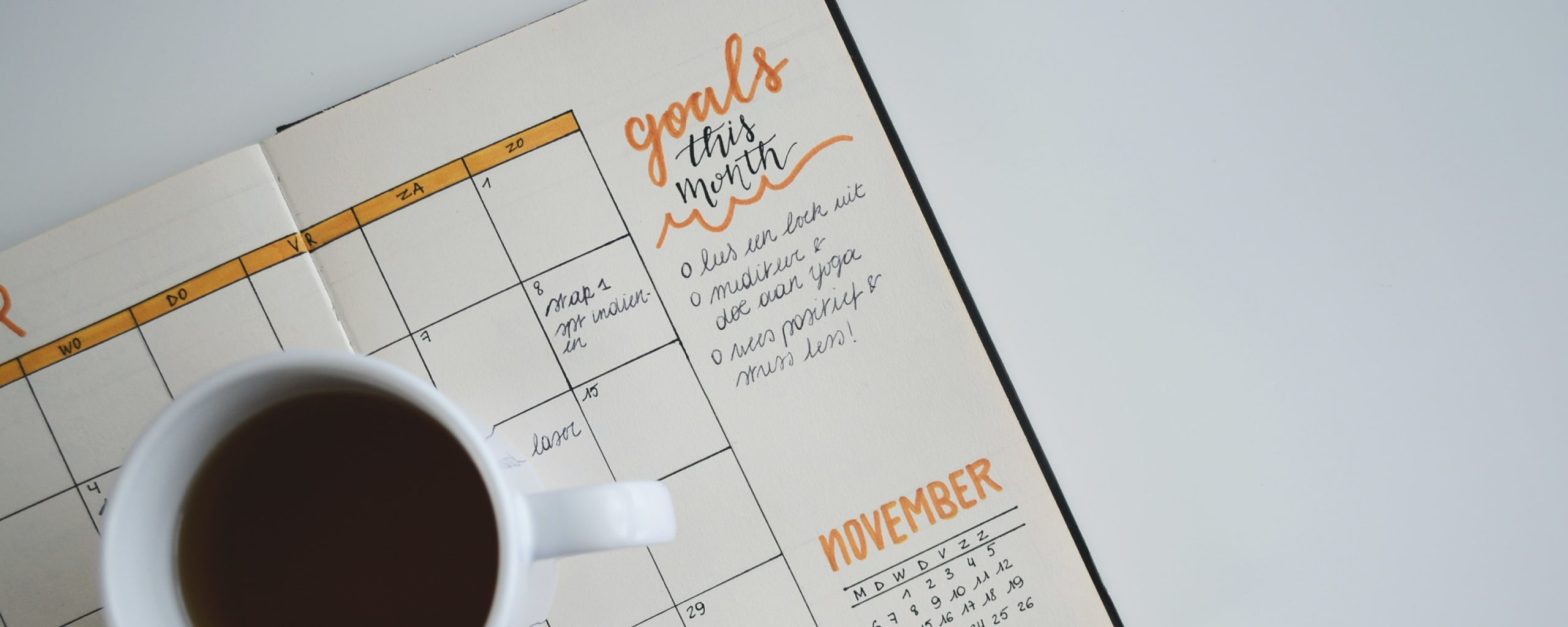 goals
this
month
o lees een boek uit
o mediteer &
doe aan yoga
o wees positief &
stress less!
R
WO
DO
VR
ZA
ZO
1
7
8
stap 1
indien-
en
15
laser
4
29
NOVEMBER
M D W D V Z Z
1 2 3 4 5
6 7 8 9 10 11 12
15 16 17 18 19
24 25 26